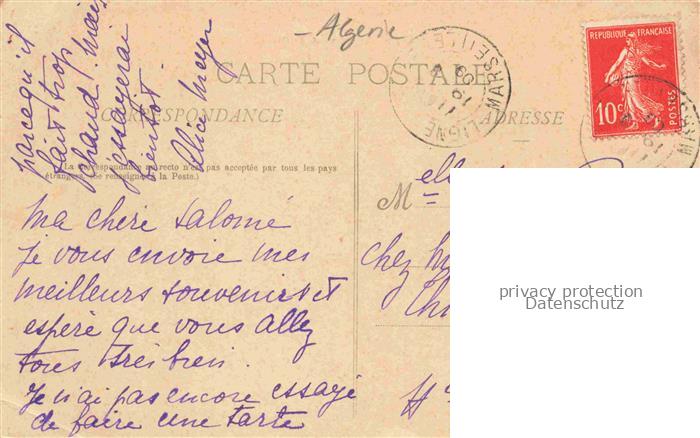 Algerie
CARTE POSTALE
CORRESPONDANCE
ADRESSE
La Correspondance au recto n'est pas acceptée par tous les pays
étrangers. (Se renseigner à la Poste.)
REPUBLIQUE FRANÇAISE
10c
POSTES
LIGNE
MARSEILLE
Ma chère Salomé
Je vous envoie mes
meilleurs souvenirs et
espère que vous allez
tous très bien.
Je n'ai pas encore essayé
de faire une tarte
parcequ'il
fait trop
chaud! Mais
essayerai
bientôt.
Alice Meyer
Melle
chez
privacy protection
Datenschutz